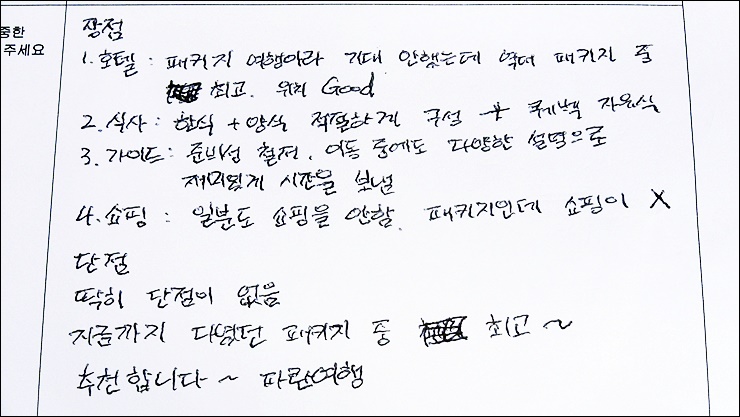 중한
주세요
장점
1. 호텔 : 패키지 여행이라 기대 안했는데 역대 패키지 중
최고. 위치 Good
2. 식사 : 한식 + 양식 적절하게 구성 + 퀘백 자유식
3. 가이드 : 준비성 철저. 이동 중에도 다양한 설명으로
재미있게 시간을 보냄
4. 쇼핑 : 일분도 쇼핑을 안함. 패키지인데 쇼핑이 X
단점
딱히 단점이 없음
지금까지 다녔던 패키지 중 최고 ~
추천합니다 ~ 파란여행